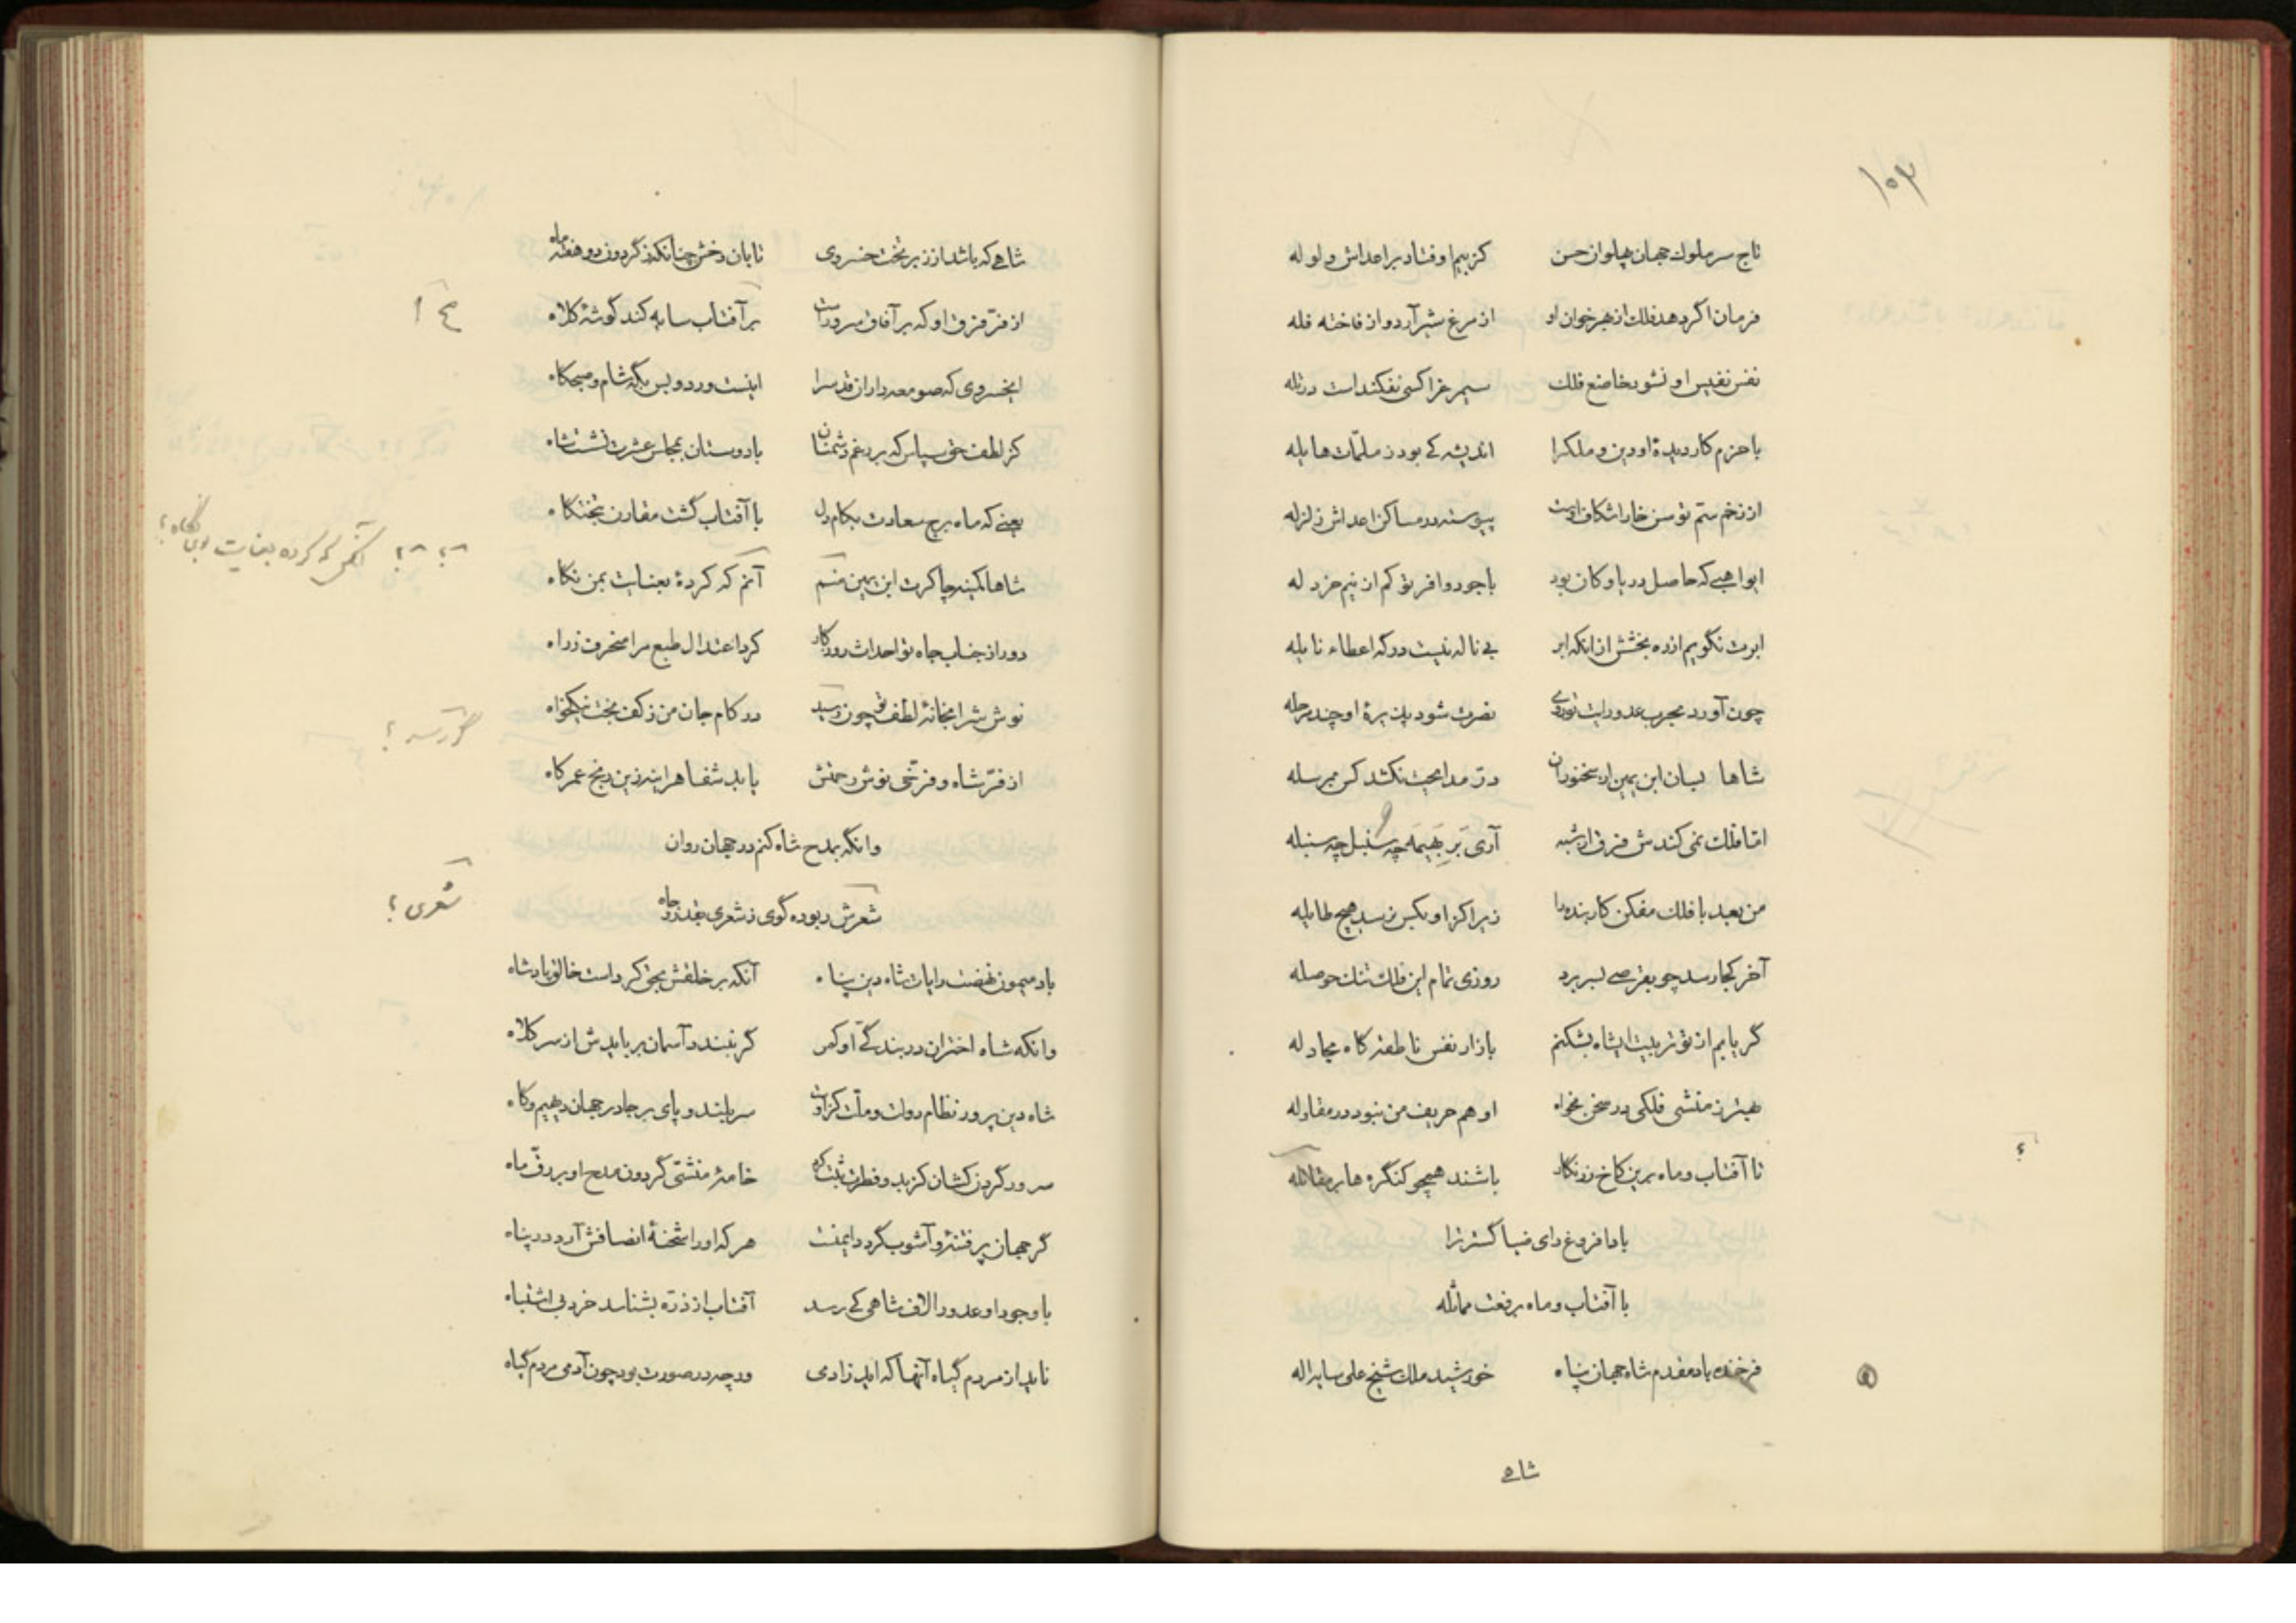 ۱۰۳
تاج سر ملوک جهان پهلوان حسن کز بیم او فتاد بر اعداش ولوله
فرمان اگر دهد فلک از بهر خوان او از مرغ شیر آرد و از فاخته فله
نفس نفیس او نشود خاضع فلک سیمرغ را کسی نفکنداست در تله
با حزم کار دیدهٔ او دین و ملک را اندیشه کے بود ز ملمّات هایله
از زخم ستم توسن خارا شکاف اوست پیوسته در مساکن اعداش زلزله
ایواهبے که حاصل دریا و کان بود با جود وافر تو کم از نیم خردله
ابرت نگویم از ره بخشش از انکه ابر بے ناله نیست در گه اعطاء نایله
چون آورد بحرب عدو رایت تو روے نصرت شود پذیرهٔ او چند مرحله
شاها بسان ابن یمین از سخنوران در مدایحت نکشد کس بمرسله
امّا فلک نمی کندش فرق از شبه آری بَر بَهیمَه چه سنبل چه سنبله
من بعد با فلک مفکن کار بنده را زیرا کز او بکس نرسد هیچ طایله
آخر کجا رسد چو بقرصے بسر برد روزی تمام این فلک تنک حوصله
گر یابم از تو تربیت ایشاه بشکنم بازار نفس ناطقه گاه مجادله
بهتر ز منشی فلکی در سخن مخواه او هم حریف من نبود در مقاوله
تا آفتاب و ماه برین کاخ زرنگار باشند همچو کنگره ها بر مقاتله
؟
بادا فروغ رای ضیا گسترترا
با آفتاب و ماه برفعت مماثله
فرخنده باد مقدم شاه جهان پناه خورشید ملک شیخ علی سایه اله
شاهے
شاهے که باشد از زبر تخت خسروی تابان رخش چنانکه ز گردون دو هفته ماه
از فرّ فرق او که بر آفاق سرور است بر آفتاب سایه کند گوشهٔ کلاه
ایخسروی که صومعه داران قدس را اینست ورد و بس بگه شام و صبحگاه
کز لطف حق سپاس که بر رغم دشمنان با دوستان بمجلس عشرت نشست شاه
یعنے که ماه برج سعادت بکام دل با آفتاب گشت مقارن بتختگاه
شاها کمینه چاکرت ابن یمین منم آنم که کردهٔ بعنایت بمن نگاه
دور از جناب جاه تو احداث روزگار کرد اعتدال طبع مرا منحرف ز راه
نوش شرابخانهٔ لطف تو چون رسید در کام جان من ز کف بخت نیکخواه
رسد ؟
از فرّ شاه و فرّخی نوش رحمتش یابد شفا هر آینه زین رنج عمر کاه
وانگه بمدح شاه کنم در جهان روان
شعرش ربوده گوی ز شعری بقدر و جاه
شعری ؟
باد میمون نهضت رایات شاه دین پناه آنکه بر خلقش بحق کرداست خالق پادشاه
وانکه شاه اختران در بندگےّ او کمر گر نبندد آسمان برباید ش از سر کلاه
شاه دین پرور نظام دولت و ملّت کزوست سربلند و پای بر جا در جهان دیهیم و گاه
سرور گردن کشان کز بدو فطرت ثبت کرد خامهٔ منشی گردون مدح او بر دفّ ماه
گر جهان پر فتنه و آشوب گردد ایمنست هر که او را شحنهٔ انصافش آرد در پناه
با وجود او عدو را لاف شاهی کے رسد آفتاب از ذرّه بشناسد خرد بی اشتباه
ناید از مردم گیاه آنها که اید ز ادمی ور چه در صورت بود چون آدمی مردم گیاه